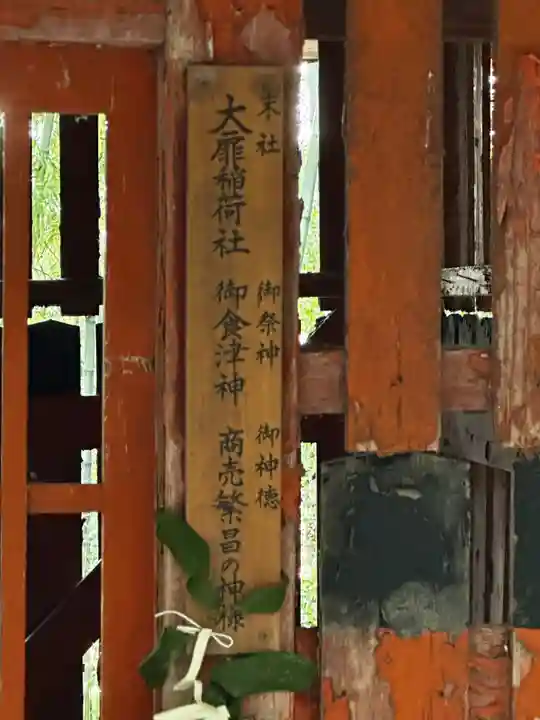 末社 御祭神 御神徳
大扉稲荷社 御食津神 商売繁昌の神様